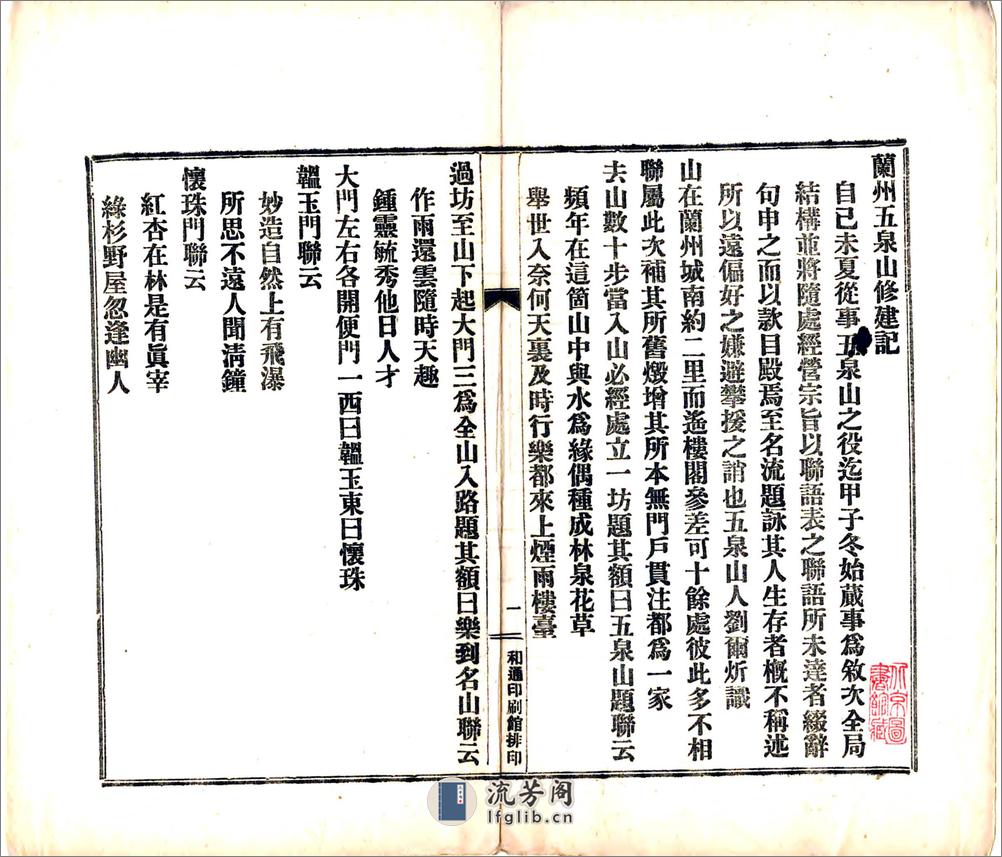 蘭州五泉山修建記
自己未夏從事五泉山之役迄甲子冬始蕆事爲敘次全局
結構並將隨處經營宗旨以聯語表之聯語所未達者綴辭
句申之而以款目殿焉至名流題詠其人生存者槪不稱述
所以遠偏好之嫌避攀援之誚也五泉山人劉爾炘識
山在蘭州城南約二里而遙樓閣參差可十餘處彼此多不相
聯屬此次補其所舊燬增其所本無門戶貫注都爲一家
去山數十步當入山必經處立一坊題其額曰五泉山題聯云
頻年在這箇山中與水爲緣偶種成林泉花草
舉世入奈何天裏及時行樂都來上煙雨樓臺
一
和通印刷館排印
過坊至山下起大門三爲全山入路題其額曰樂到名山聯云
作雨還雲隨時天趣
鍾靈毓秀他日人才
大門左右各開便門一西曰韞玉東曰懷珠
韞玉門聯云
妙造自然上有飛瀑
所思不遠人聞清鐘
懷珠門聯云
紅杏在林是有眞宰
綠杉野屋忽逢幽人
北京圖
書館藏
流芳阁
lfglib.cn